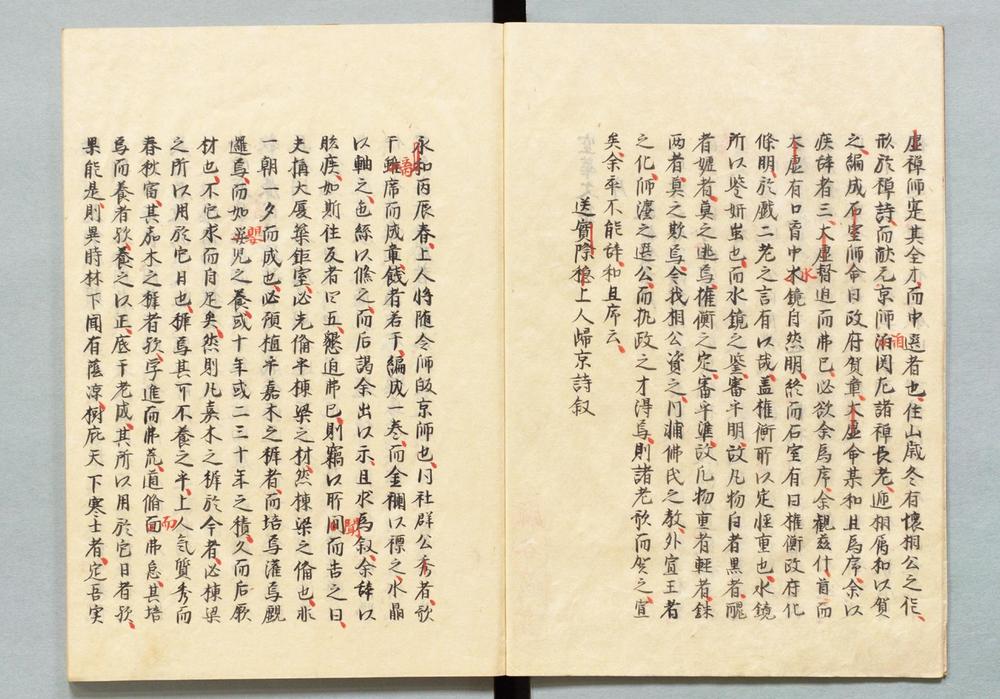 虛禪師寔其全才而中選者也住山歲冬有懷相公之作
形於禪詩而獻元京師洎関左諸禪長老迊相属和以賀
之編成不室師命日政府賀章太虛命某和且爲席余以
疾辞者三太虛督迫而弗已必欲余爲席余觀茲什首而
太虛有口胥中水鏡自然明終而石室有曰權衡政府化
條明於戲二老之言有以哉蓋權衡所以定恇重也水鏡
所以鍳妍蚩也而水鏡之鍳審乎明故凡物白者黑者醜
者嬺者莫之逃焉權衡之定審乎準故凡物重者輕者銖
两者莫之欺焉今我相公資之門浦佛氏之教外宣王者
之化師濅之選公而執政之才淂焉則諸老歌而賀之宣
矣余率不能辞和且席云
送實際穏上人歸京詩叙
永和丙辰春上人将随令师皈京师也同社群公秀者歌
于離席而成章餞者若干編成一卷而金襴以褾之水晶
以軸之色絲以絛之而后謁余出以示且求爲叙余辞以
眩疾如斯往友者四五懇迫弗已則竊以所间而告之曰
夫搆大厦築鉅室必先俻乎棟梁之材然棟梁之俻也非
一朝一夕而成也必須植乎嘉木之穉者而培焉灌焉覶
邏焉而如嬰児之養或十年或二三十年之積久而后厥
材也不它求而自足矣然則凡嘉木之穉於今者必棟梁
之所以用於它日也穉焉其可不養之乎上人氣質秀而
春秋富其嘉木之穉者欤学進而弗荒道脩面弗怠其培
焉而養者欤養之以正底于老成其所以用於它日者欤
果能是則異時林下闻有蔭凉樹庇天下寒士者定吾実